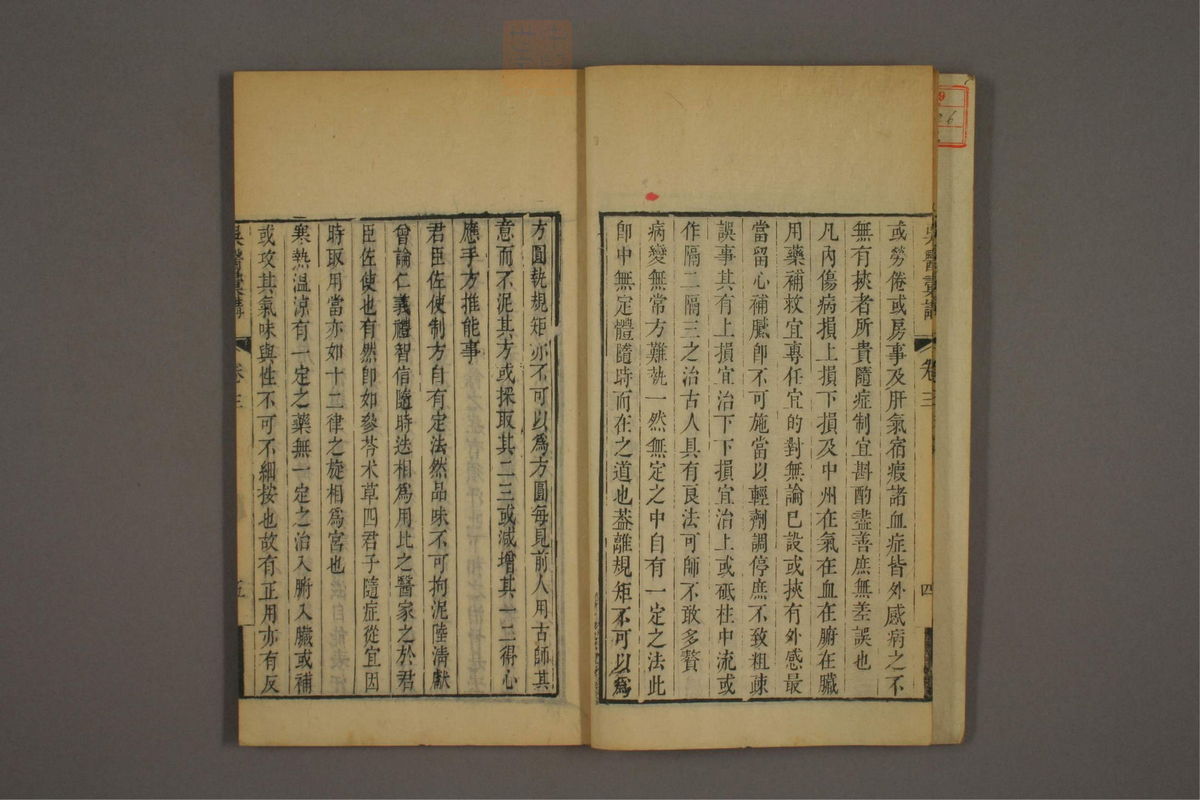 吳醫彙講
卷三
四
或勞倦或房事及肝氣宿瘕諸血症皆外感病之不
無有挾者所貴隨症制宜斟酌盡善庶無差誤也
凡內傷病損上損下損及中州在氣在血在腑在臟
用藥補救宜專任宜的對無論已設或挾有外感最
當留心補臟卽不可施當以輕劑調停庶不致粗疎
誤事其有上損宜治下下損宜治上或砥柱中流或
作隔二隔三之治古人具有良法可師不敢多贅
病變無常方難執一然無定之中自有一定之法此
卽中無定體隨時而在之道也葢離規矩不可以爲
方圓執規矩亦不可以爲方圓每見前人用古師其
意而不泥其方或採取其二三或減增其一二得心
應手方推能事
君臣佐使制方自有定法然品味不可拘泥陸清獻
曾論仁義禮智信隨時迭相爲用比之醫家之於君
臣佐使也有然卽如參苓术草四君子隨症從宜因
時取用當亦如十二律之旋相爲宮也
寒熱溫涼有一定之藥無一定之治入腑入臟或補
或攻其氣味與性不可不細按也故有正用亦有反
吳醫彙講
卷三
五